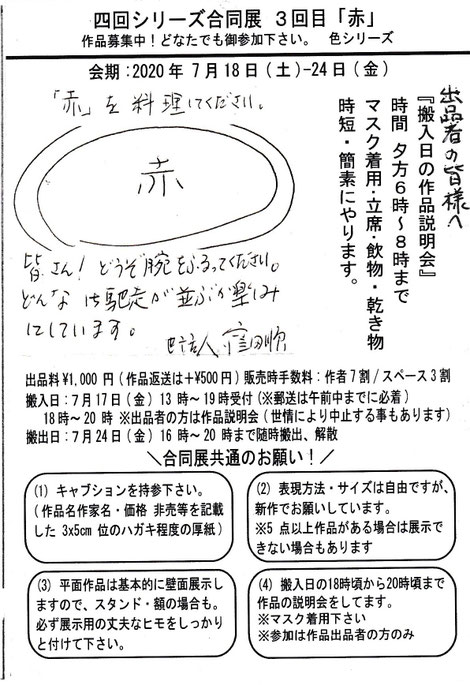 四回シリーズ合同展 3回目「赤」
作品募集中！どなたでも御参加下さい。 色シリーズ
会期：2020年 7月18日(土)-24日(金)
出品者の皆様へ
『搬入日の作品説明会』
時間 夕方6時～8時まで
マスク着用・立席・飲物・乾き物
時短・簡素にやります。
「赤」を料理してください。
赤
皆さん！どうぞ腕をふるってください。
どんな御馳走が並ぶか楽しみ
にしています。
出品料¥1,000円(作品返送は+¥500円) 販売時手数料：作者7割/スペース3割
搬入日：7月17日(金) 13時～19時受付(※郵送は午前中までに必着)
18時～20時 ※出品者の方は作品説明会(世情により中止する事もあります)
搬出日：7月24日(金) 16時～20時まで随時搬出、解散
＼合同展共通のお願い！／
(1) キャプションを持参下さい。
(作品名作家名・価格 非売等を記載
した 3x5cm 位のハガキ程度の厚紙)
(2) 表現方法・サイズは自由ですが、
新作でお願しています。
※5 点以上作品がある場合は展示で
きない場合もあります
(3) 平面作品は基本的に壁面展示し
ますので、スタンド・額の場合も。
必ず展示用の丈夫なヒモをしっかり
と付けて下さい。
(4) 搬入日の18時頃から20時頃まで
作品の説明会をしてます。
※マスク着用下さい
※参加は作品出品者の方のみ